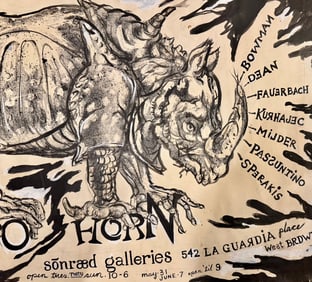 BOWMAN
DEAN
FAUERBACH
KURHAJEC
MIJDER
PASSUNTINO
SPERAKIS
O HORN
sōnræd galleries 542 LA GUARDIA place
West BRDW
open tues. THRU sun. 10-6 may 31 JUNE-7 open 'til 9